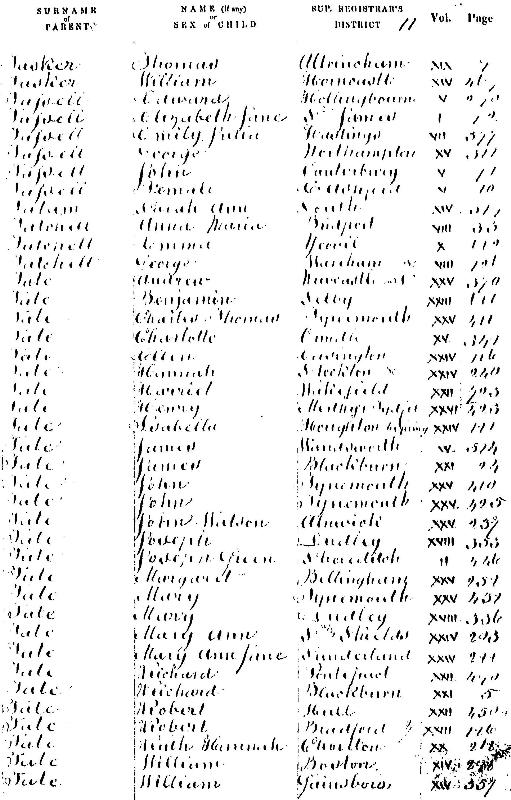 SURNAME of PARENT NAME (if any) or SEX of CHILD SUP. REGISTRAR'S DISTRICT 11 Vol. Page
Tasker Thomas Altrincham XIX
Tasker William Horncastle XIV
Tassell Edward Hollingbourn V
Tassell Elizabeth Jane St James I
Tassell Emily Julia Hastings VII 377
Tassell George Northampton XV 311
Tassell John Canterbury V 71
Tassell Female V
Tatam Sarah Ann Louth XIV
Tatchell Anna Maria Bridport VIII 33
Tatchell Emma Yeovil X 119
Tatchell George Wareham VIII
Tate Andrew Newcastle XXV 370
Tate Benjamin Selby XXIII
Tate Charles Thomas Tynemouth XXV 411
Tate Charlotte Oundle XV 341
Tate Ellen Easington XXIV 116
Tate Hannah Stockton XXIV 240
Tate Harriet Wakefield XXII 493
Tate Henry Merthyr Tydfil XXVI 493
Tate Isabella Houghton le Spring XXIV 171
Tate James Wandsworth IV 514
Tate James Blackburn XXI 24
Tate John Tynemouth XXV 410
Tate John Tynemouth XXV 425
Tate John Watson Alnwick XXV 237
Tate Joseph Dudley XVIII 353
Tate Joseph Green Shoreditch II 446
Tate Margaret Bellingham XXV 257
Tate Mary Tynemouth XXV 437
Tate Mary Dudley XVIII 336
Tate Mary Ann Sth Shields XXIV 293
Tate Mary Ann Jane Sunderland XXIV 271
Tate Richard Pontefract XXII 470
Tate Richard Blackburn XXI 5
Tate Robert Hull XXII 450
Tate Robert Bradford Y XXIII 176
Tate Ruth Hannah Chorlton XX
Tate William Boston XIV
Tate William Gainsboro XIV 357